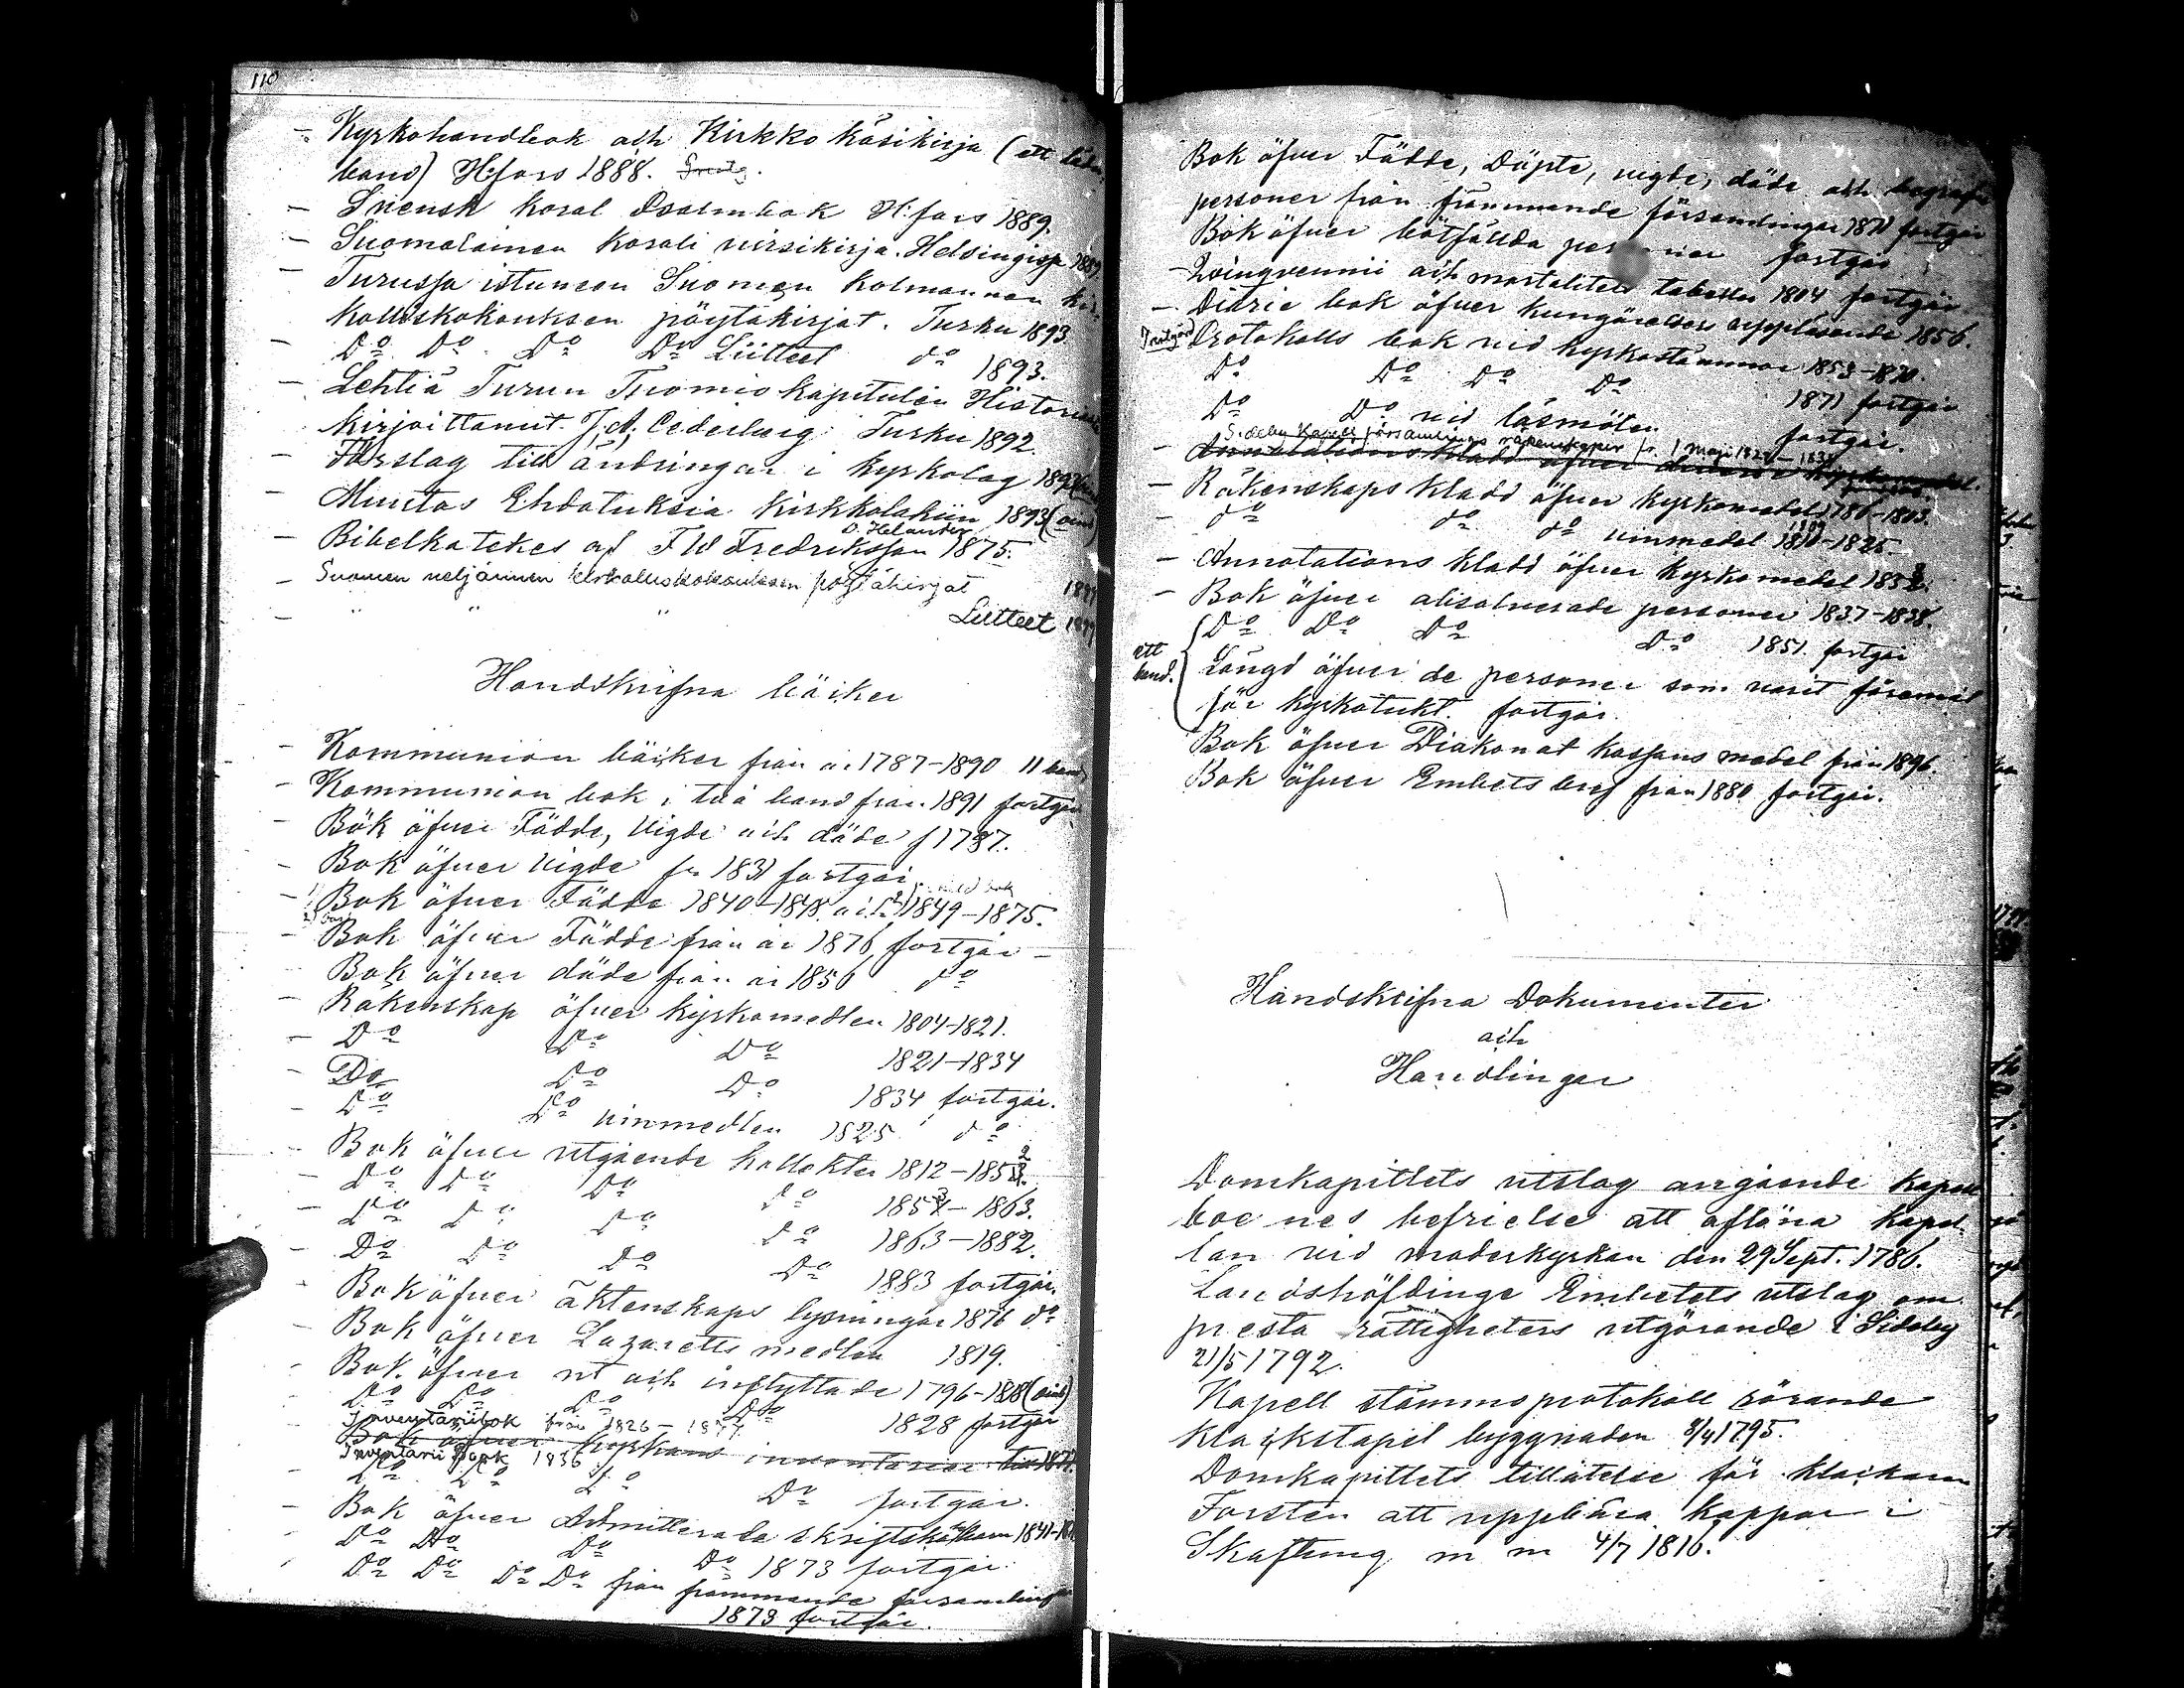 110
- Kyrkohandbok och Kirkko käsikirja (ett
band) H:fors 1888.
- Svensk koral psalmbok H:fors 1889.
- Suomalainen korali virsikirja. Helsingissä 1889.
- Turussa istuneen Suomen kolmannen kir-
kolliskokouksen pöytäkirjat. Turku 1893
- Do Do Do Do Liitteet do 1893.
- Lehtiä Turun Tuomiokapitulin Historiasta
kirjoittanut J. A. Cederberg Turku 1892.
- Förslag till ändringar i kyrkolag 1893
- Muutos Ehdotuksia kirkkolakiin 1893
O. Helander
- Bibelkatekes af F W Fredriksson 1875.
- Suomen neljännen kirkolliskokouksen pöytäkirjat 1899
- " " " Liitteet 1899
Handskrifna böcker
- Kommunion böcker från år 1787-1890 11 band
- Kommunion bok i två band från 1891 fortgår
Bok öfver Födde, vigde och döde f 1787.
- Bok öfver vigde fr 1831 fortgår
- Bok öfver Födde 1840-1848 och 1849-1875.
- Bok öfver Födde från år 1876 fortgår -
Bok öfver döde från år 1850 do
- Räkenskap öfver kyrkomedlen 1804-1821.
- Do Do Do 1821-1834
- Do Do Do 1834 fortgår.
- Do Do vinmedlen 1825 do
- Bok öfver utgående kollekter 1812-1852.
- Do Do Do do 1853-1863.
- Do Do Do Do 1863-1882.
- Do Do Do Do 1883 fortgår.
- Bok öfver äktenskaps lysningar 1876 do
Bok öfver Lazaretts medlen 1819.
- Bok öfver ut och inflyttade 1796-1828
Do Do Do Do 1828 fortgår
Inventariibok från 1826-1877
Bok öfver kyrkans inventarier till 1877.
Inventarii Book 1836
- Do Do Do Do fortgår.
- Bok öfver Admitterade skriftskolbarn 1841-
- Do Do Do Do 1873 fortgår.
Do Do Do Do från främmande församlingar
1873 fortgår.
Bok öfver Födde, Döpte, vigde, döde och begrafne
personer från främmande församlingar 1871 fortgår
Bok öfver bötfällda personer fortgår
- Qvinqvennii och mortalitets tabeller 1804 fortgår
- Diarie bok öfver kungörelsers uppläsande 1856.
Protokolls bok vid kyrkostämmor 1853-1870.
Do Do Do Do 1871 fortgår
Do Do vid läsmöten fortgår.
Sideby Kapell församlings räkenskaper fr. 1 Maj 1821-1834
- Annotations kladd öfver diverse kyrkomedel.
- Räkenskaps kladd öfver kyrkomedel 1786-1803.
- do do do vinmedel 1810-1825
- Annotations kladd öfver kyrkomedel 1833.
- Bok öfver absolverade personer 1837-1838.
Do Do Do Do 1851 fortgår
ett
band.
Längd öfver de personer som varit föremål
för kyrkotukt. fortgår.
Bok öfver Diakonat kassans medel från 1896.
Bok öfver Embets bref från 1880 fortgår.
Handskrifna Dokumenter
och
Handlingar
Domkapitlets utslag angående kapell
boernes befrielse att aflöna kapel-
lan vid moderkyrkan den 29 Sept. 1786.
Landshöfdinge Embetets utslag om
presta rättigheters utgörande i Sideby
21/5 1792.
Kapell stämmoprotokoll rörande
klockstapel byggnaden 8/4 1795.
Domkapitlets tillåtelse för klockaren
Forsten att uppbära kappar i
Skaftung m m 4/7 1816.